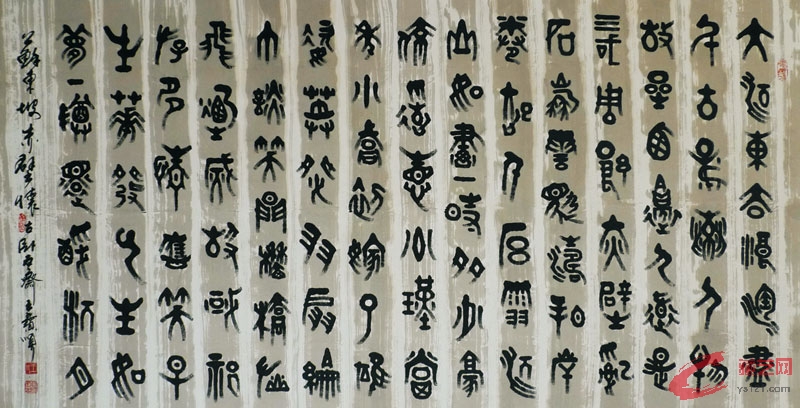 大江東去浪淘盡
千古風流人物
故壘西邊人道是
三國周郎赤壁亂
石崩雲驚濤拍岸
卷起千堆雪江
山如畫一時多少豪
傑遙想公瑾當
年小喬初嫁了雄
姿英發羽扇綸
巾談笑間檣櫓
飛煙滅故國神
遊多情應笑早
生華發人生如
夢一樽還酹江月
蘇東坡赤壁懷古
ys121.com